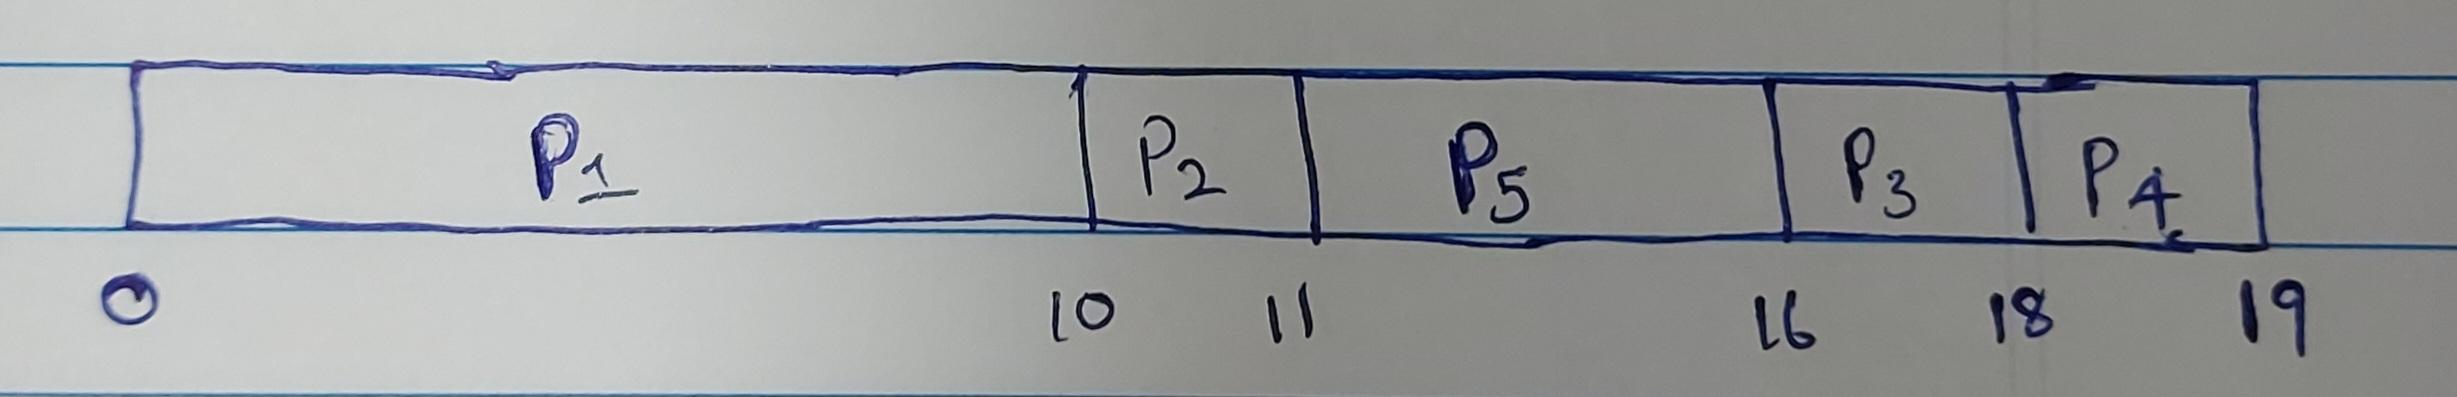 P1 P2 P5 P3 P4
0 10 11 16 18 19